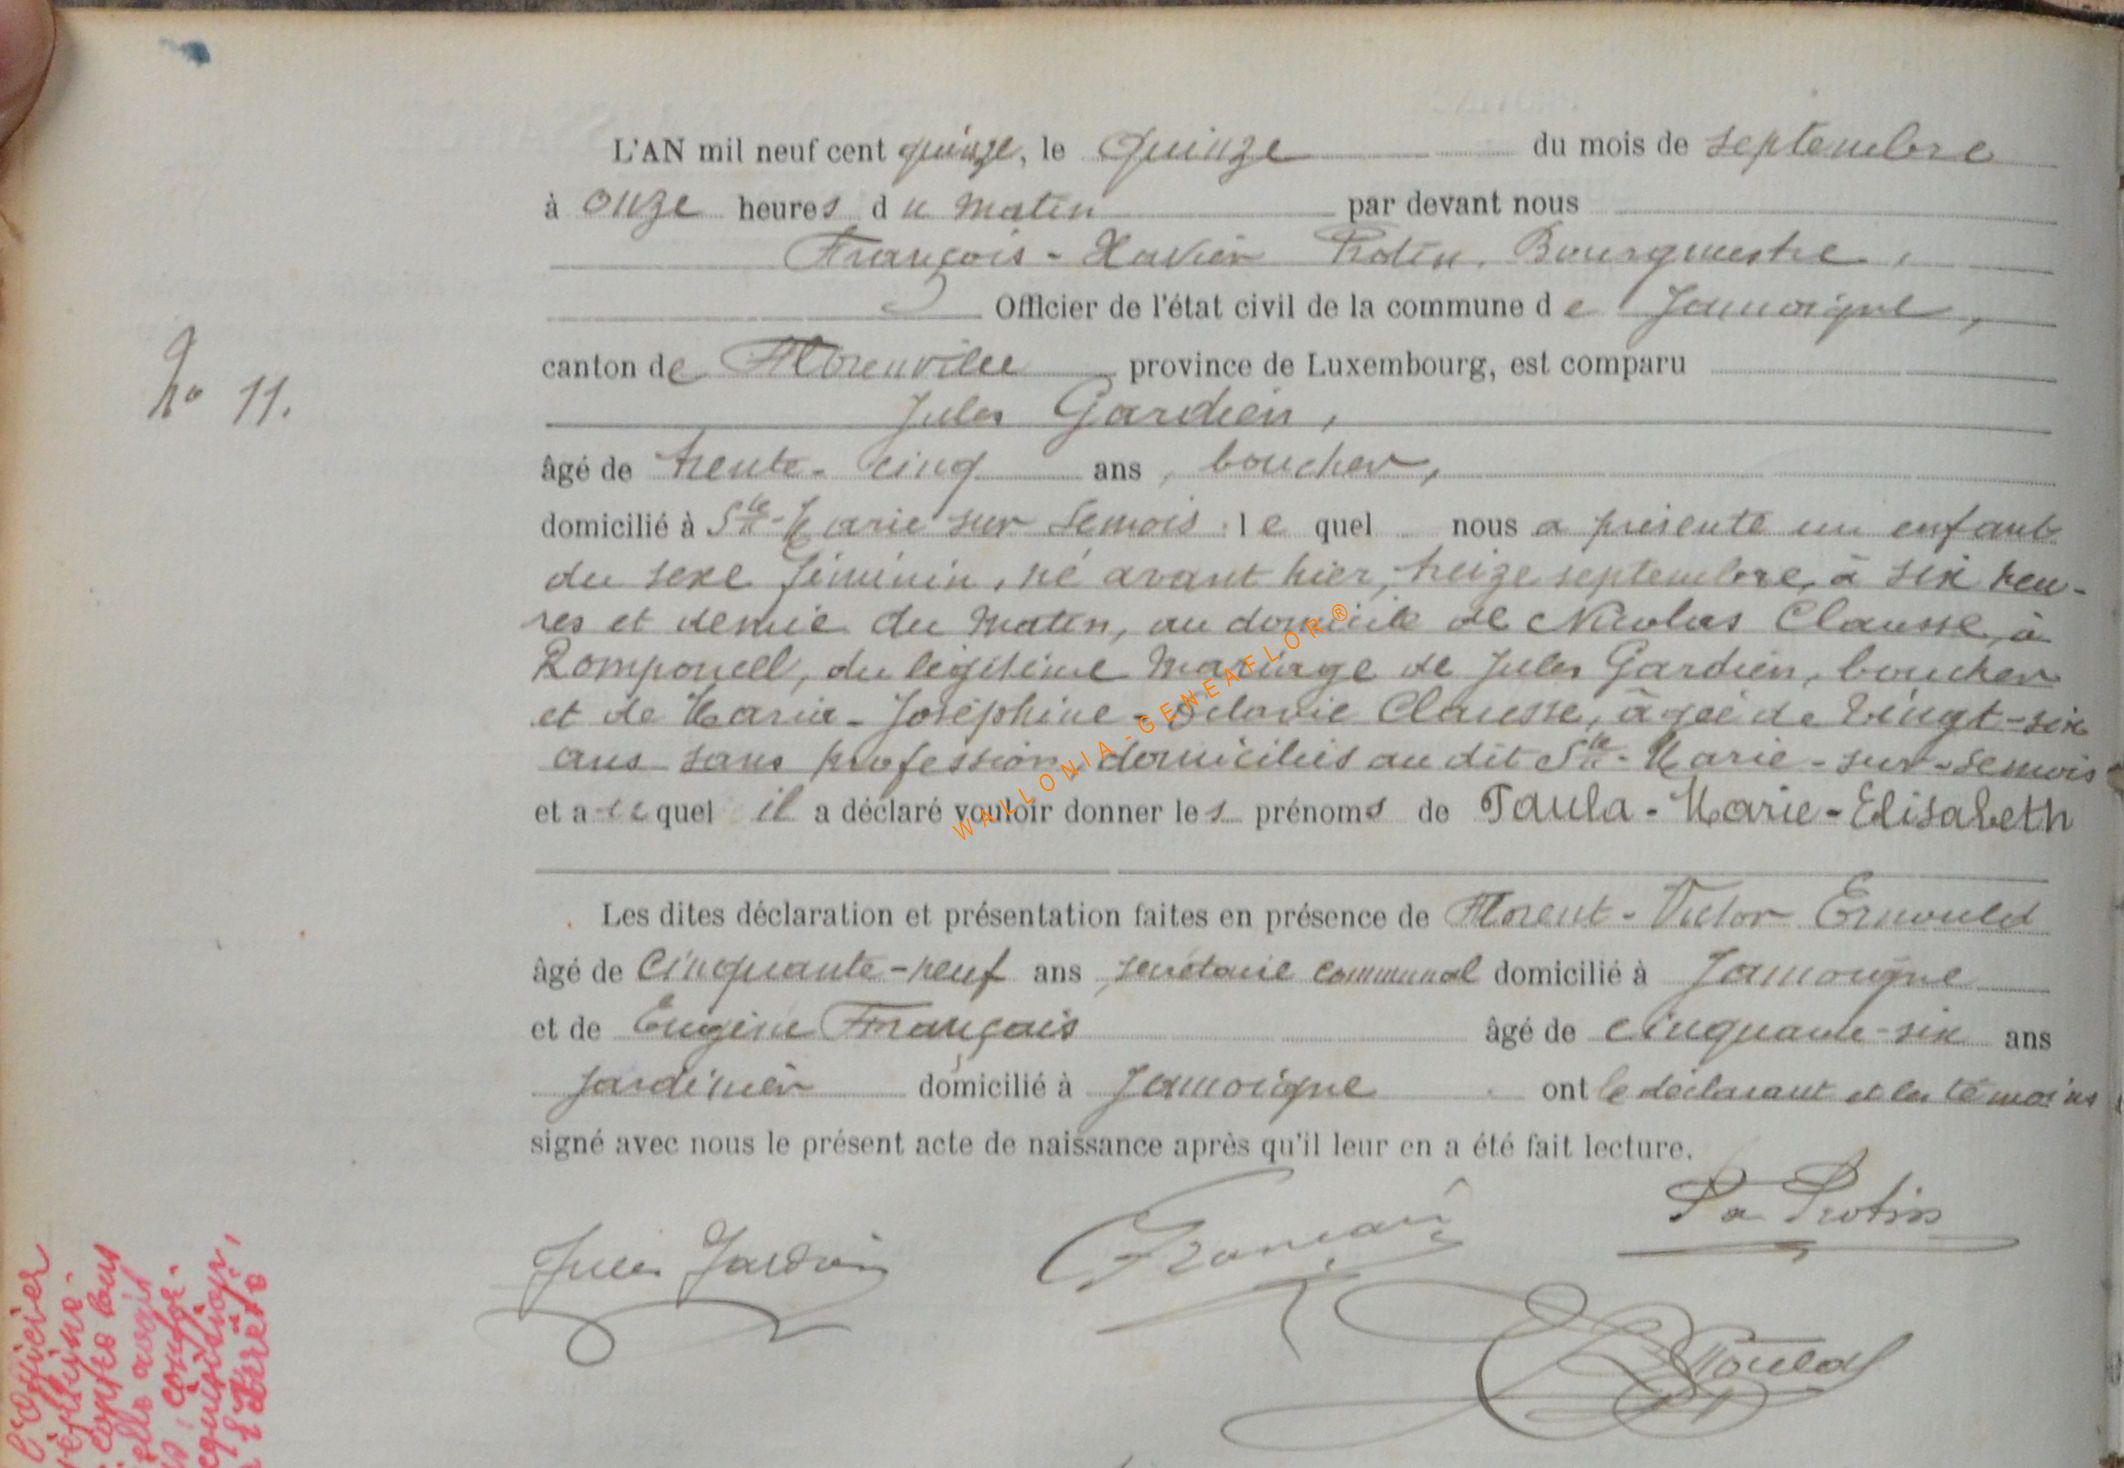 L'AN mil neuf cent quinze, le quinze du mois de septembre
à onze heures du matin par devant nous
François-Xavier Protin, Bourgmestre,
Officier de l'état civil de la commune de Jamoigne,
canton de Florenville province de Luxembourg, est comparu
Jules Gardien,
âgé de trente-cinq ans, boucher,
domicilié à Ste-Marie sur Semois lequel nous a présenté un enfant
du sexe féminin, né avant hier, treize septembre, à six heu-
res et demie du matin, au domicile de Nicolas Clausse, à
Romponcel, du légitime mariage de Jules Gardien, boucher
et de Maria-Joséphine-Octavie Clausse, âgée de vingt-six
ans sans profession, domiciliés au dit Ste-Marie-sur-Semois
et auquel il a déclaré vouloir donner les prénoms de Paula-Marie-Elisabeth
No 11.
Les dites déclaration et présentation faites en présence de Florent-Victor Ernould
âgé de cinquante-neuf ans, secrétaire communal domicilié à Jamoigne
et de Eugène François âgé de cinquante-six ans
jardinier domicilié à Jamoigne ont le déclarant et les témoins
signé avec nous le présent acte de naissance après qu'il leur en a été fait lecture.
Jules Gardien
François
Protin
Ernould
l'officier
WALLONIA-GENEAFLOR®